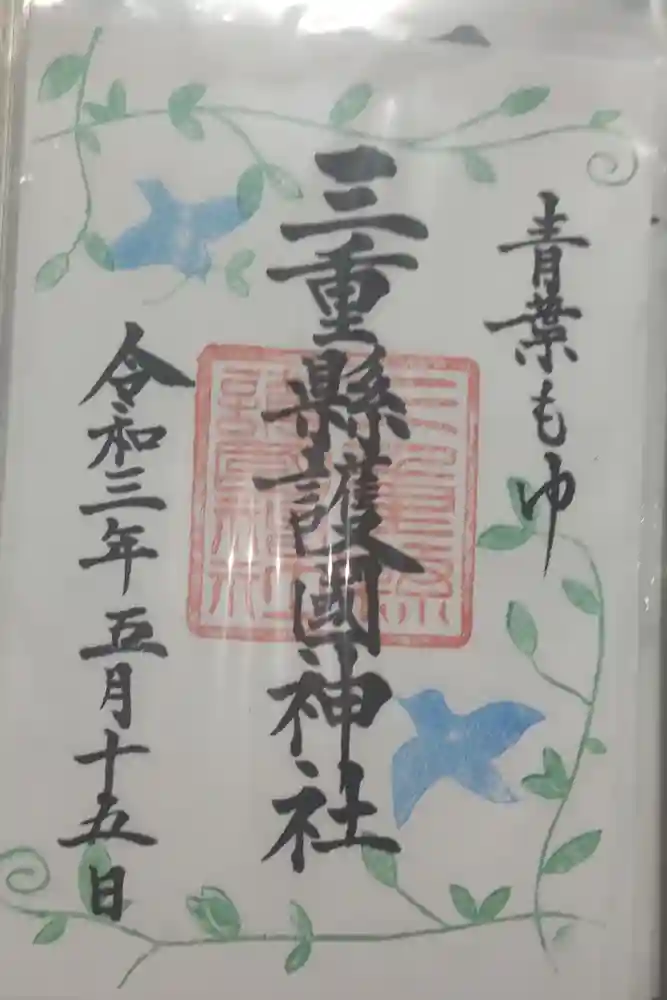 青葉もゆ
三重縣護國神社
令和三年五月十五日